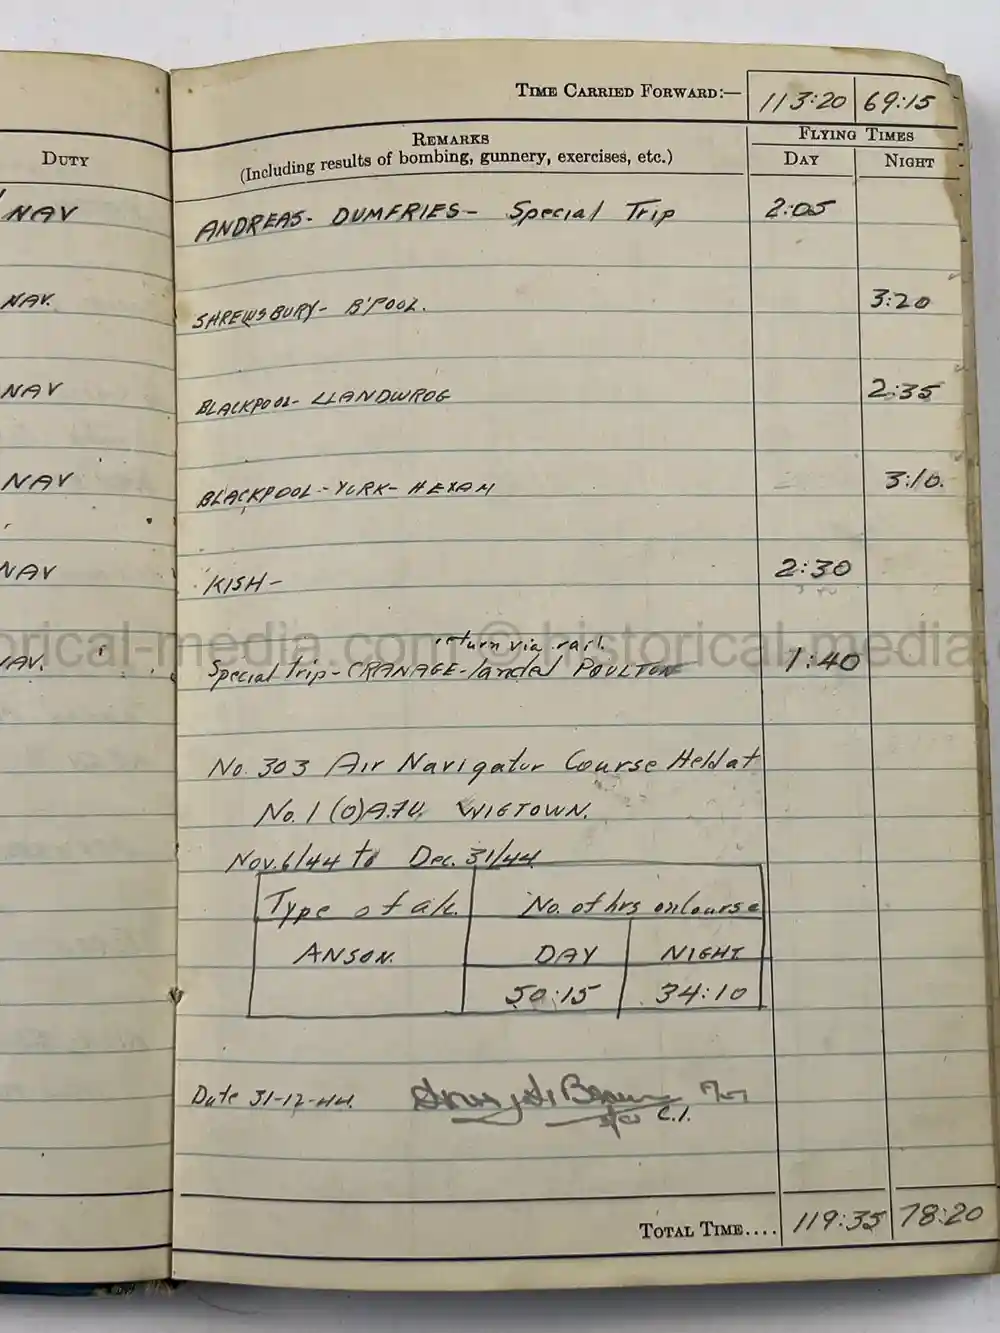 TIME CARRIED FORWARD:— 113:20 69:15
DUTY REMARKS FLYING TIMES
(Including results of bombing, gunnery, exercises, etc.) DAY NIGHT
NAV ANDREAS- DUMFRIES- Special Trip 2:05
NAV. SHREWSBURY- B'POOL. 3:20
NAV BLACKPOOL- LLANDWROG 2:35
NAV BLACKPOOL-YORK-HEXAM 3:10.
NAV KISH- 2:30
return via rail.
orical-media.com © historical-media.
NAV. Special trip-CRANAGE-landed POULTON 1:40
No. 303 Air Navigator Course Held at
No. 1 (O) A.F.U. WIGTOWN.
Nov. 6/44 to Dec. 31/44
Type of a/c. No. of hrs on Course
ANSON. DAY NIGHT
50:15 34:10
Date 31-12-44.
C.I.
TOTAL TIME.... 119:35 78:20